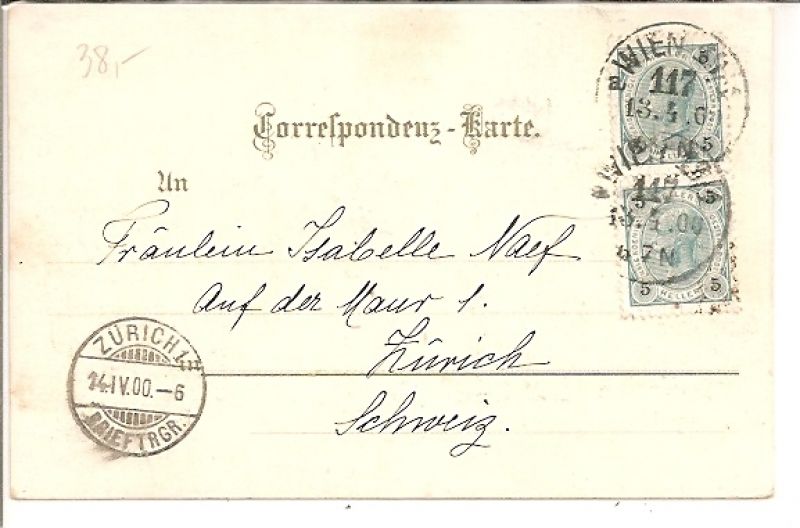 38,-
WIEN
117
13.4.0
5 5
WIEN
117
13.4.00
6-7N
5 5
HELLER
5 5
HELLER
Correspondenz-Karte.
An
Fräulein Isabelle Naef
Auf der Maur 1.
Zürich
Schweiz.
ZÜRICH
14.IV.00.-6
BRIEFTRGR.